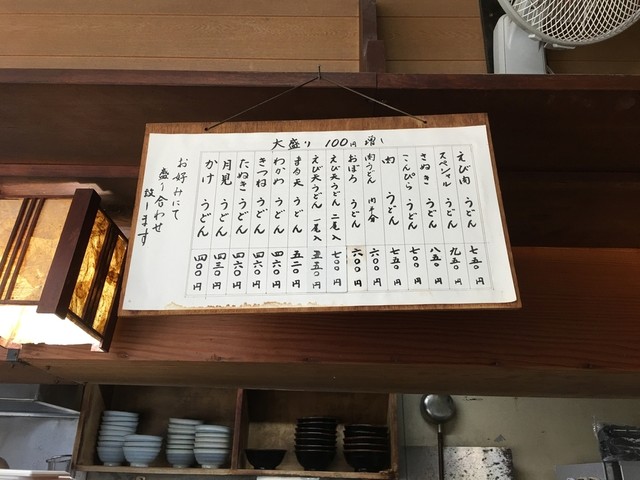 大盛り 100円増し
えび肉うどん 七五〇円
スペシャルうどん 九五〇円
さぬきうどん 八五〇円
こんぴらうどん 六〇〇円
肉うどん 七五〇円
肉うどん 六〇〇円
おぼろうどん 六〇〇円
えび天うどん 二尾入 七〇〇円
えび天うどん 一尾入 五五〇円
まる天うどん 五二〇円
わかめうどん 四六〇円
きつねうどん 四六〇円
たぬきうどん 四六〇円
月見うどん 四三〇円
かけうどん 四〇〇円
お好みにて
盛り合わせ
致します